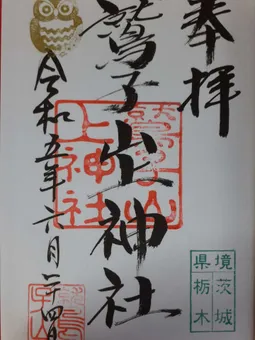 奉拝
鷲子山上神社
鷲子山上神社
令和五年六月二十四日
境茨城
県栃木